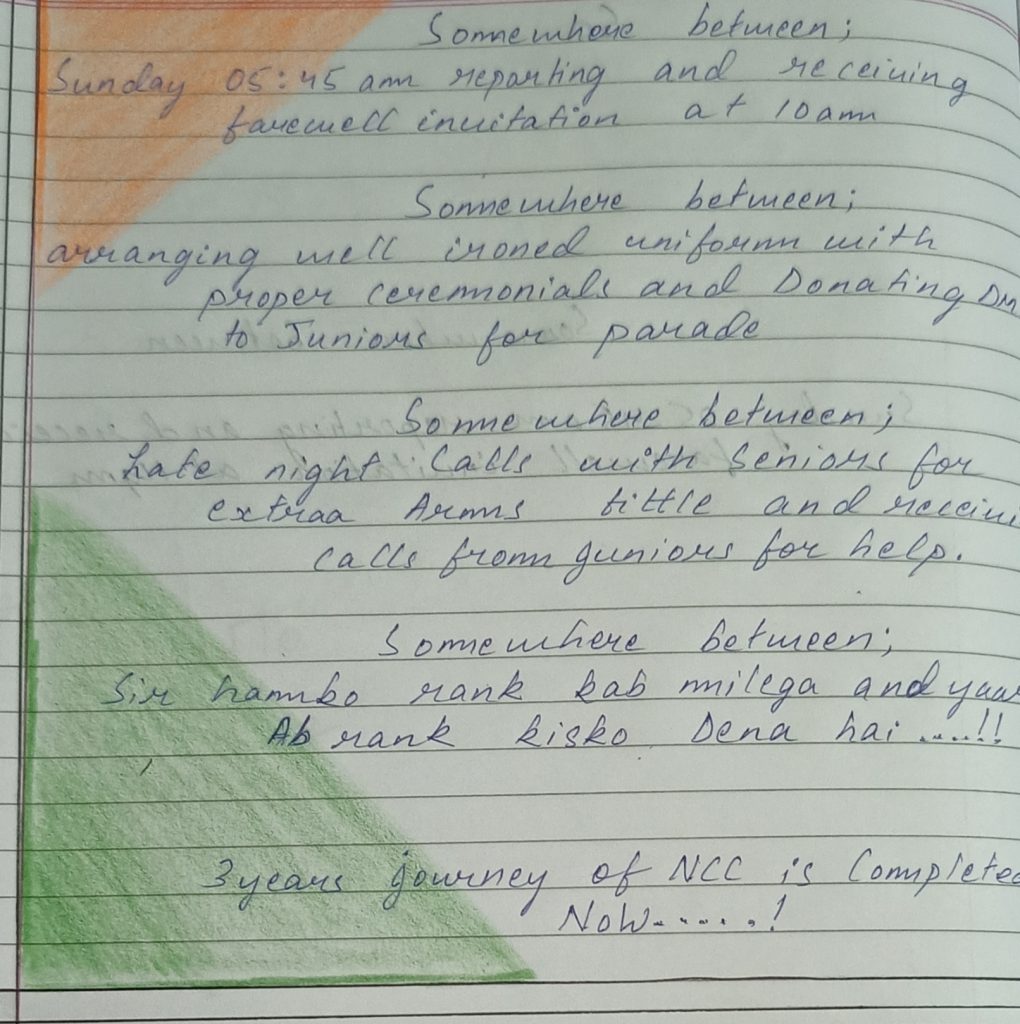 Somewhere between;
Sunday 05:45 am reporting and receiving
farewell invitation at 10am
Somewhere between;
arranging well ironed uniform with
proper ceremonials and Donating DM
to Juniors for parade
Somewhere between;
Late night Calls with Seniors for
extraa Arms tittle and receivi
calls from juniors for help.
Somewhere between;
Sir hamko rank kab milega and yaar
Ab rank kisko Dena hai .....!!
3 years journey of NCC is Completed
Now......!